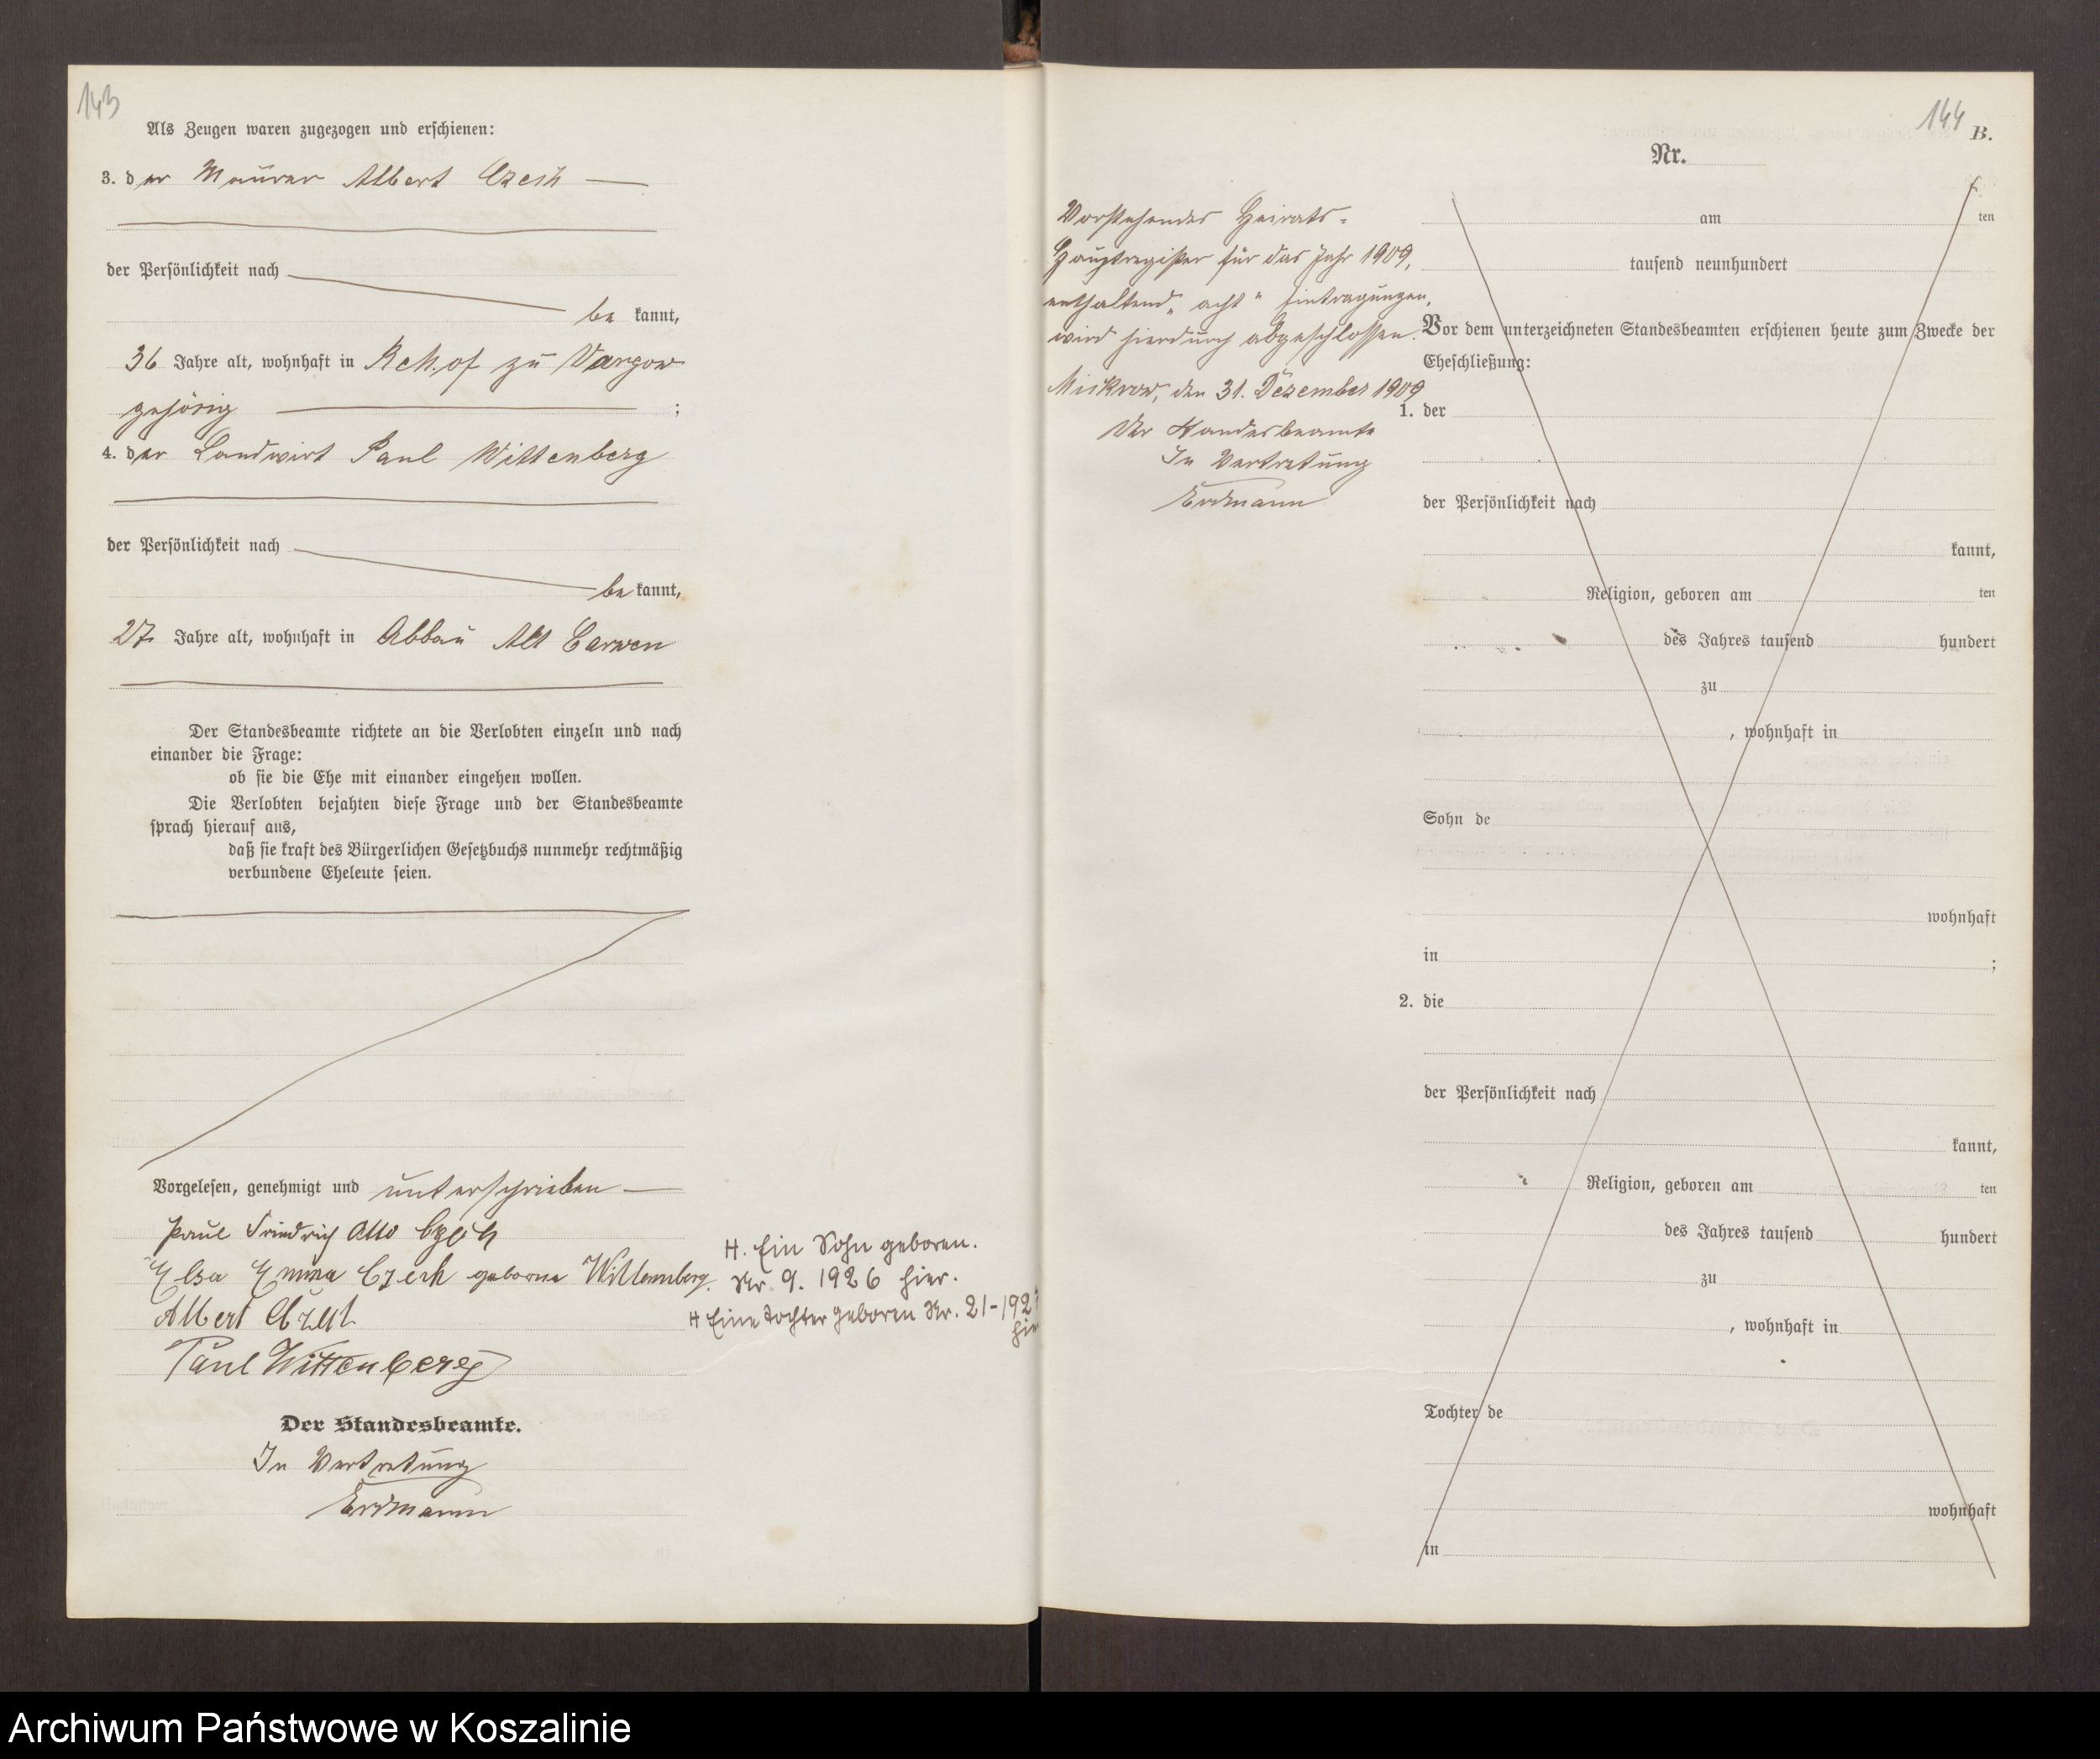 143
Als Zeugen waren zugezogen und erschienen:
3. der Maurer Albert Czech
der Persönlichkeit nach
be kannt,
36 Jahre alt, wohnhaft in Rehhof zu Vargow
gehörig ;
4. der Landwirt Paul Wittenberg
der Persönlichkeit nach
be kannt,
27 Jahre alt, wohnhaft in Abbau Alt Carwen
Der Standesbeamte richtete an die Verlobten einzeln und nach
einander die Frage:
ob sie die Ehe mit einander eingehen wollen.
Die Verlobten bejahten diese Frage und der Standesbeamte
sprach hierauf aus,
daß sie kraft des Bürgerlichen Gesetzbuchs nunmehr rechtmäßig
verbundene Eheleute seien.
Vorgelesen, genehmigt und unterschrieben
Paul Friedrich Otto Czech
Elsa Emma Czech geborne Wittenberg.
Albert Czech
Paul Wittenberg
Der Standesbeamte.
In Vertretung
Erdmann
H. Ein Sohn geboren.
Nr. 9. 1926 hier.
H Eine Tochter geboren Nr. 21-192
144
B.
Nr.
Vorstehendes Heirats-
Hauptregister für das Jahr 1909,
enthaltend „acht" Eintragungen,
wird hierdurch abgeschlossen.
Mickrow, den 31. Dezember 1909
Der Standesbeamte
In Vertretung
Erdmann
am ten
tausend neunhundert
Vor dem unterzeichneten Standesbeamten erschienen heute zum Zwecke der
Eheschließung:
1. der
der Persönlichkeit nach
kannt,
Religion, geboren am ten
des Jahres tausend hundert
zu
, wohnhaft in
Sohn de
wohnhaft
in ;
2. die
der Persönlichkeit nach
kannt,
Religion, geboren am ten
des Jahres tausend hundert
zu
, wohnhaft in
Tochter de
wohnhaft
in
Archiwum Państwowe w Koszalinie